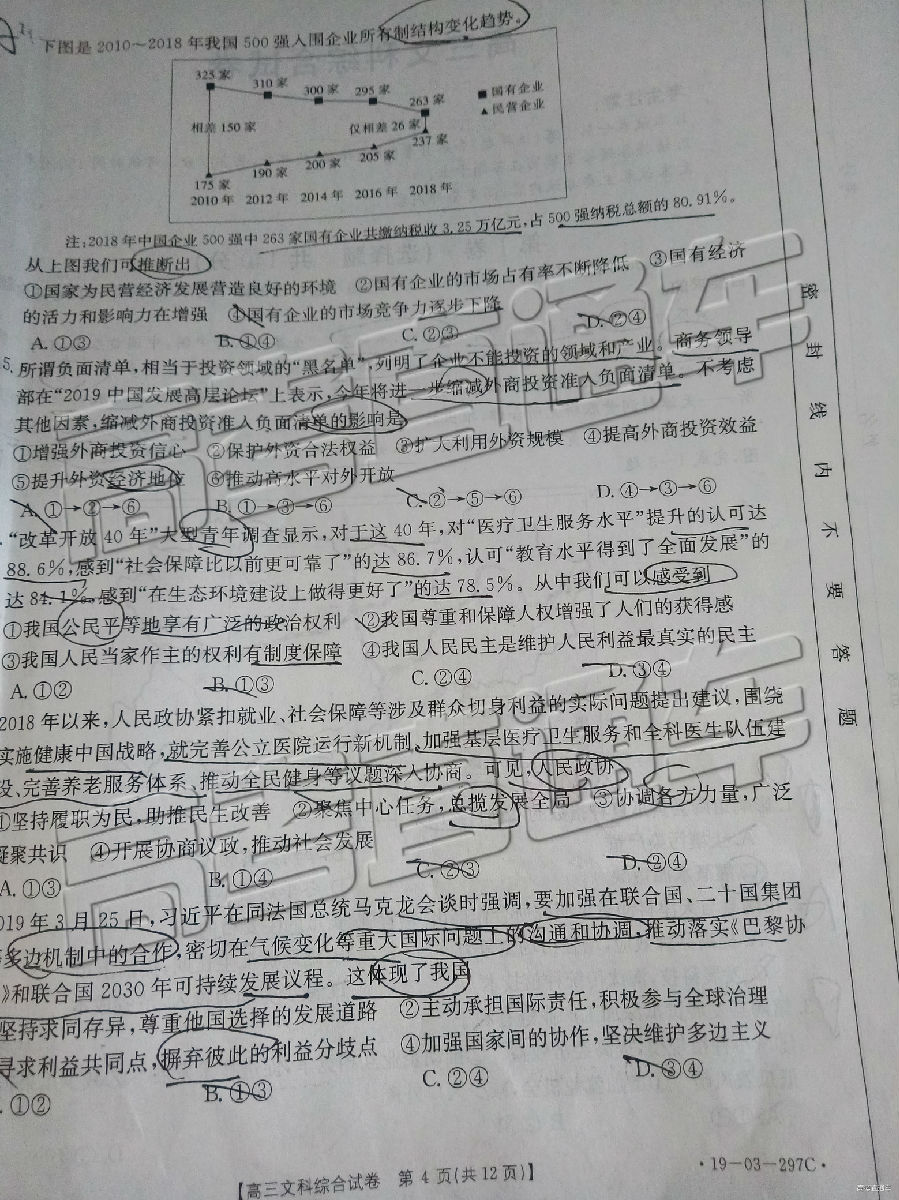 下图是 2010～2018 年我国 500 强入围企业所有制结构变化趋势。
325 家
310 家
300 家
295 家
263 家
■国有企业
▲民营企业
相差 150 家
仅相差 26 家
175 家
190 家
200 家
205 家
237 家
2010 年 2012 年 2014 年 2016 年 2018 年
注:2018 年中国企业 500 强中 263 家国有企业共缴纳税收 3.25 万亿元,占 500 强纳税总额的 80.91%。
从上图我们可推断出
①国家为民营经济发展营造良好的环境 ②国有企业的市场占有率不断降低 ③国有经济
的活力和影响力在增强 ④国有企业的市场竞争力逐步下降
A. ①③ B. ①④ C. ②③ D. ②④
5. 所谓负面清单,相当于投资领域的“黑名单”,列明了企业不能投资的领域和产业。商务领导
部在“2019 中国发展高层论坛”上表示,今年将进一步缩减外商投资准入负面清单。不考虑
其他因素,缩减外商投资准入负面清单的影响是
①增强外商投资信心 ②保护外资合法权益 ③扩大利用外资规模 ④提高外商投资效益
⑤提升外资经济地位 ⑥推动高水平对外开放
A. ①→②→⑥ B. ①→③→⑥ C. ②→⑤→⑥ D. ④→③→⑥
“改革开放 40 年”大型青年调查显示,对于这 40 年,对“医疗卫生服务水平”提升的认可达
88.6%,感到“社会保障比以前更可靠了”的达 86.7%,认可“教育水平得到了全面发展”的
达 81.1%,感到“在生态环境建设上做得更好了”的达 78.5%。从中我们可以感受到
①我国公民平等地享有广泛的政治权利 ②我国尊重和保障人权增强了人们的获得感
③我国人民当家作主的权利有制度保障 ④我国人民民主是维护人民利益最真实的民主
A. ①② B. ①③ C. ②④ D. ③④
2018 年以来,人民政协紧扣就业、社会保障等涉及群众切身利益的实际问题提出建议,围绕
实施健康中国战略,就完善公立医院运行新机制、加强基层医疗卫生服务和全科医生队伍建
设、完善养老服务体系、推动全民健身等议题深入协商。可见,人民政协
①坚持履职为民,助推民生改善 ②聚焦中心任务,总揽发展全局 ③协调各方力量,广泛
凝聚共识 ④开展协商议政,推动社会发展
A. ①③ B. ①④ C. ②③ D. ②④
019 年 3 月 25 日,习近平在同法国总统马克龙会谈时强调,要加强在联合国、二十国集团
等多边机制中的合作,密切在气候变化等重大国际问题上的沟通和协调,推动落实《巴黎协
》和联合国 2030 年可持续发展议程。这体现了我国
坚持求同存异,尊重他国选择的发展道路 ②主动承担国际责任,积极参与全球治理
寻求利益共同点,摒弃彼此的利益分歧点 ④加强国家间的协作,坚决维护多边主义
. ①② B. ①③ C. ②④ D. ③④
密封线内不要答题
【高三文科综合试卷 第 4 页(共 12 页)】
·19-03-297C·
高考直通车
高考直通车